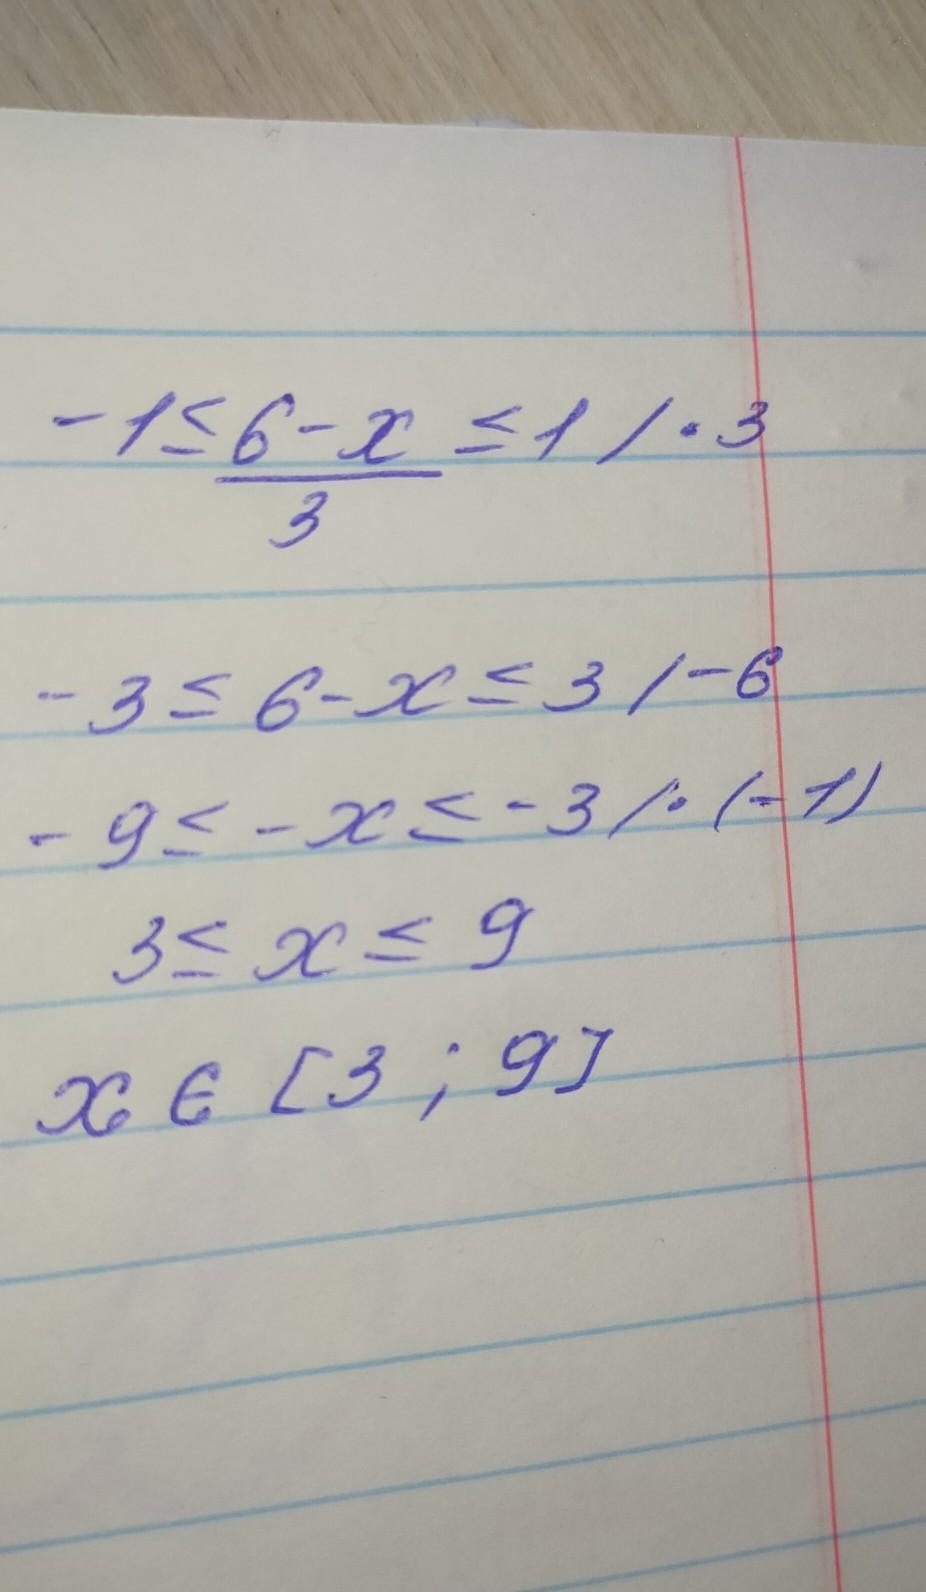 -1 ≤ (6-x)/3 ≤ 1 / · 3
-3 ≤ 6-x ≤ 3 / -6
-9 ≤ -x ≤ -3 / · (-1)
3 ≤ x ≤ 9
x ∈ [3 ; 9]